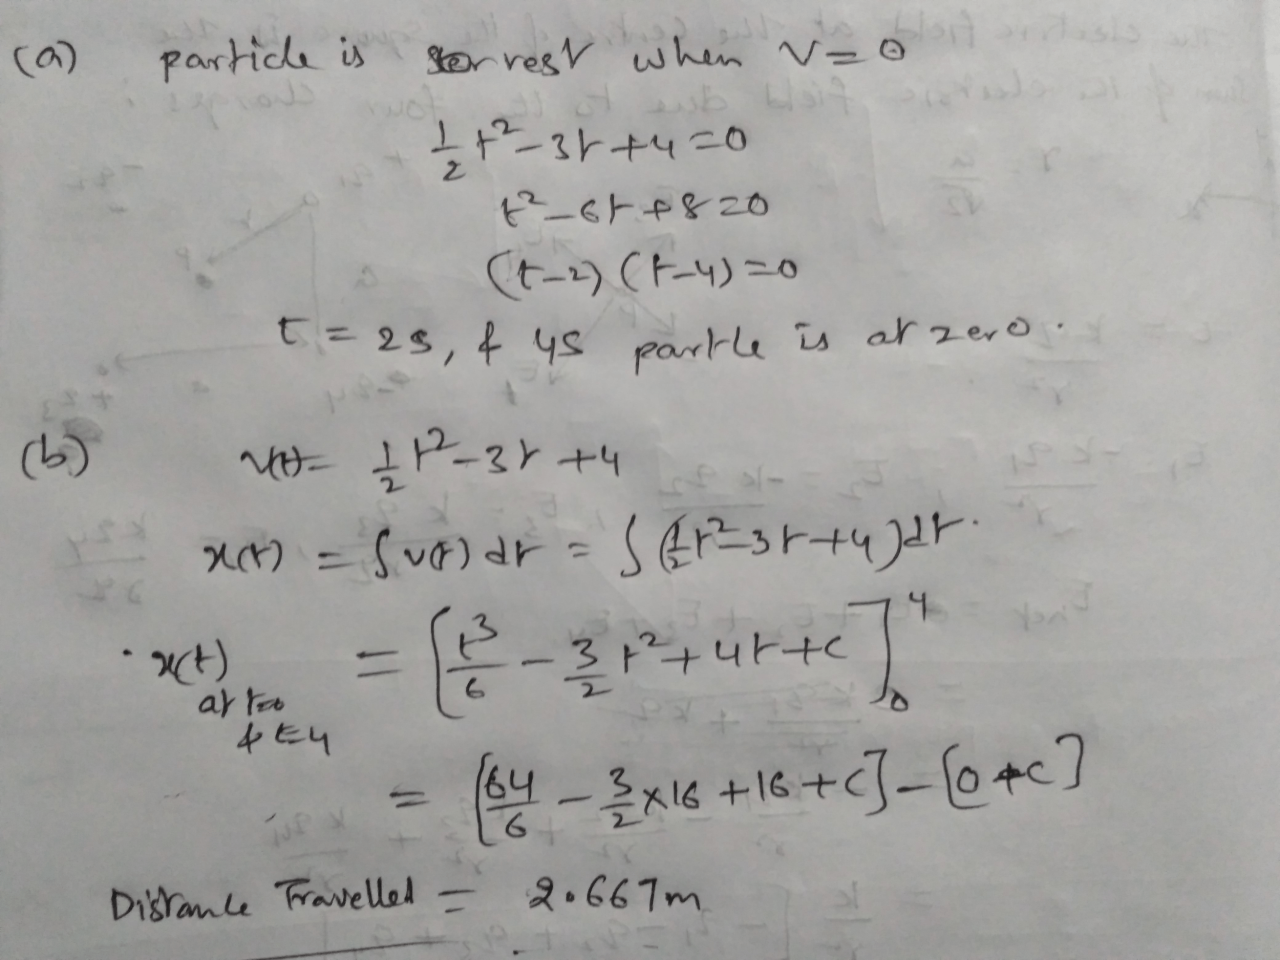 (a) particle is rest when v=0
1/2 t² - 3t + 4 = 0
t² - 6t + 8 = 0
(t-2) (t-4) = 0
t = 2s, & 4s partle is at zero.
(b) v(t) = 1/2 t² - 3t + 4
x(t) = ∫ v(t) dt = ∫ (1/2 t² - 3t + 4) dt.
x(t) = [t³/6 - 3/2 t² + 4t + c]₀⁴
at t=0
& t=4
= [64/6 - 3/2 x16 + 16 + c] - [0 + c]
Distance Travelled = 2.667m